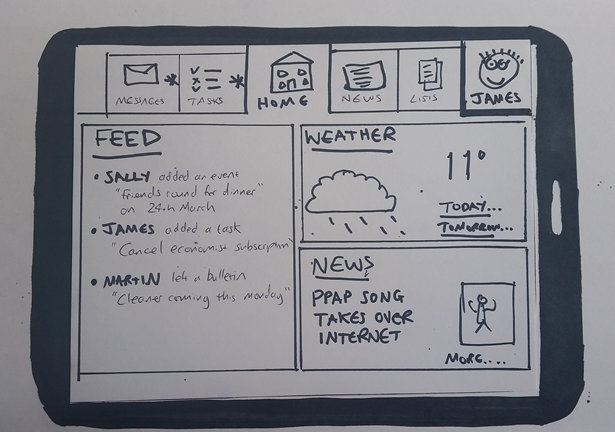 MESSAGES * TASKS * HOME NEWS LISTS JAMES
FEED
• SALLY added an event
"friends round for dinner"
on 24th March
• JAMES added a task
"Cancel economist subscription"
• MARTIN left a bulletin
"Cleaner coming this monday"
WEATHER
11°
TODAY...
TOMORROW...
NEWS
PPAP SONG
TAKES OVER
INTERNET
MORE....